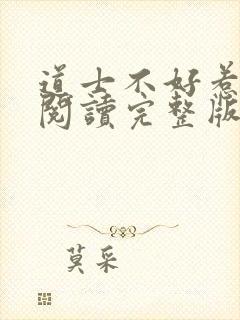 道士不好惹
閱讀完整版
莫采